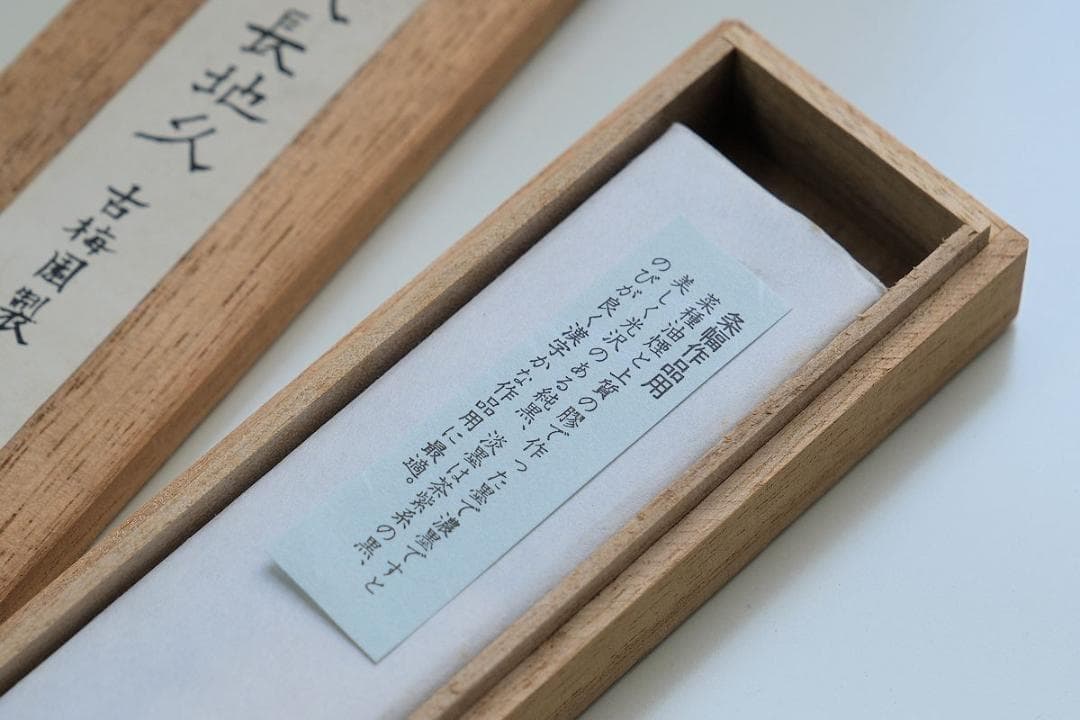 長地久
古梅園製
条幅作品用
菜種油煙と上質の膠で作った墨で濃墨ですと
美しく光沢のある純黒、淡墨は茶紫系の黒、
のびが良く漢字かな作品用に最適。